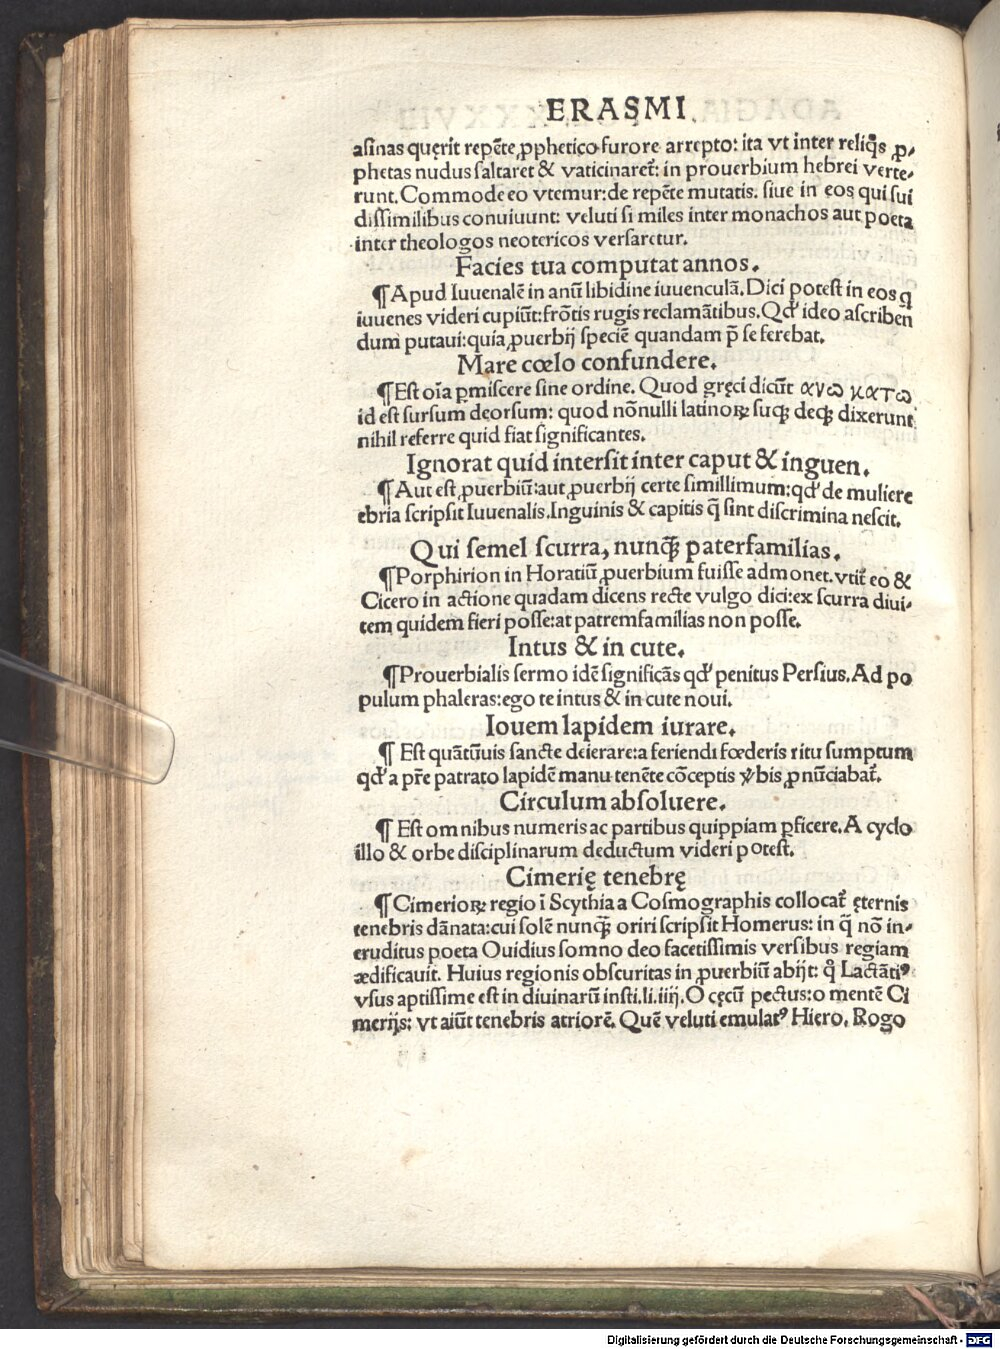 ERASMI.
asinas quęrit repẽte ꝓphetico furore arrepto: ita vt inter reliq̃s ꝓ-
phetas nudus saltaret & vaticinaret᷑: in prouerbium hebrei verte-
runt. Commode eo vtemur: de repẽte mutatis. siue in eos qui sui
dissimilibus conuiuunt: veluti si miles inter monachos aut poeta
inter theologos neotericos versaretur.
Facies tua computat annos.
¶ Apud Iuuenalẽ in anũ libidine iuuenculã. Dici potest in eos q
iuuenes videri cupiũt: frõtis rugis reclamãtibus. Qđ ideo ascribeñ
dum putaui: quia ꝓuerbij speciẽ quandam p̃ se ferebat.
Mare cœlo confundere.
¶ Est oĩa ꝑmiscere sine ordine. Quod gręci dicũt ανω κατω
id est sursum deorsum: quod nõnulli latinoꝝ susq; deq; dixerunt
nihil referre quid fiat significantes.
Ignorat quid intersit inter caput & inguen.
¶ Aut est ꝓuerbiũ: aut ꝓuerbij certe simillimum: qđ de muliere
ebria scripsit Iuuenalis. Inguinis & capitis q̃ sint discrimina nescit.
Qui semel scurra, nunq̃ paterfamilias.
¶ Porphirion in Horatiũ ꝓuerbium fuisse admonet. vtit᷑ eo &
Cicero in actione quadam dicens recte vulgo dici: ex scurra diui-
tem quidem fieri posse: at patremfamilias non posse.
Intus & in cute.
¶ Prouerbialis sermo idẽ significãs qđ penitus Persius. Ad po
pulum phaleras: ego te intus & in cute noui.
Iouem lapidem iurare.
¶ Est quãtũuis sancte deierare: a feriendi fœderis ritu sumptum
qđ a p̃re patrato lapidẽ manu tenẽte cõceptis v̕bis ꝓnũciabat᷑.
Circulum absoluere.
¶ Est omnibus numeris ac partibus quippiam ꝑficere. A cyclo
illo & orbe disciplinarum deductum videri potest.
Cimerię tenebrę
¶ Cimerioꝝ regio ĩ Scythia a Cosmographis collocat᷑ ęternis
tenebris dãnata: cui solẽ nunq̃ oriri scripsit Homerus: in q̃ nõ in-
eruditus poeta Ouidius somno deo facetissimis versibus regiam
ædificauit. Huius regionis obscuritas in ꝓuerbiũ abijt: q̊ Lactãtiꝰ
vsus aptissime est in diuinarũ insti. li. iiij. O cęcũ pectus: o mentẽ Ci
merijs: vt aiũt tenebris atriorẽ. Quẽ veluti emulatꝰ Hiero. Rogo
Digitalisierung gefördert durch die Deutsche Forschungsgemeinschaft - DFG